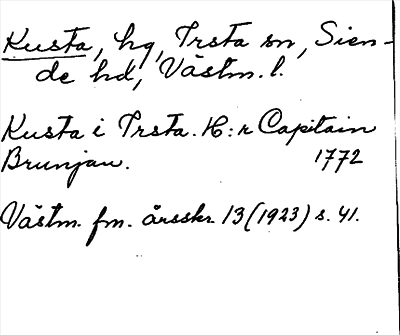 Kusta, hg, Irsta sn, Sien-
de hd, Västm. l.
Kusta i Irsta. H:r Capitain
Brunjan. 1772
Västm. fm. årsskr. 13 (1923) s. 41.